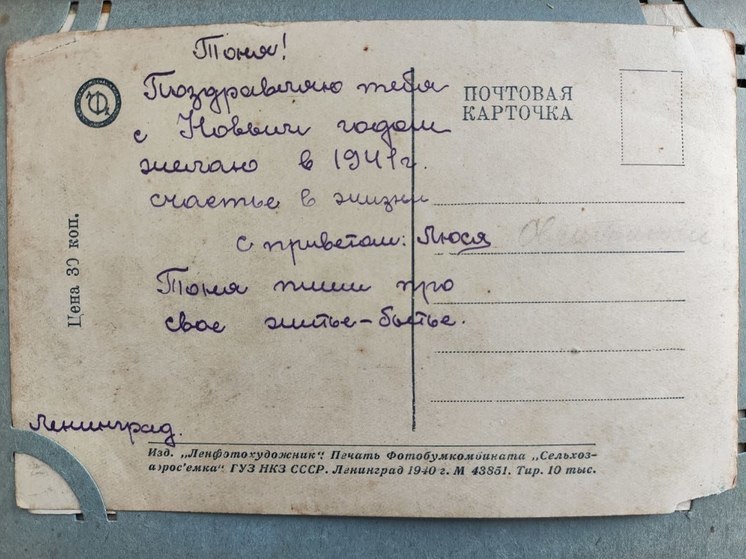 Тоня!
Поздравляю тебя
с Новым годом
желаю в 1941 г.
счастье в жизни
с приветом: Люся
Тоня пиши про
свое житье-бытье.
Ленинград.
ПОЧТОВАЯ
КАРТОЧКА
Цена 30 коп.
Изд. „Ленфотохудожник“ Печать Фотобумкомбината „Сельхоз-
аэрос'емка“ ГУЗ НКЗ СССР. Ленинград 1940 г. М 43851. Тир. 10 тыс.